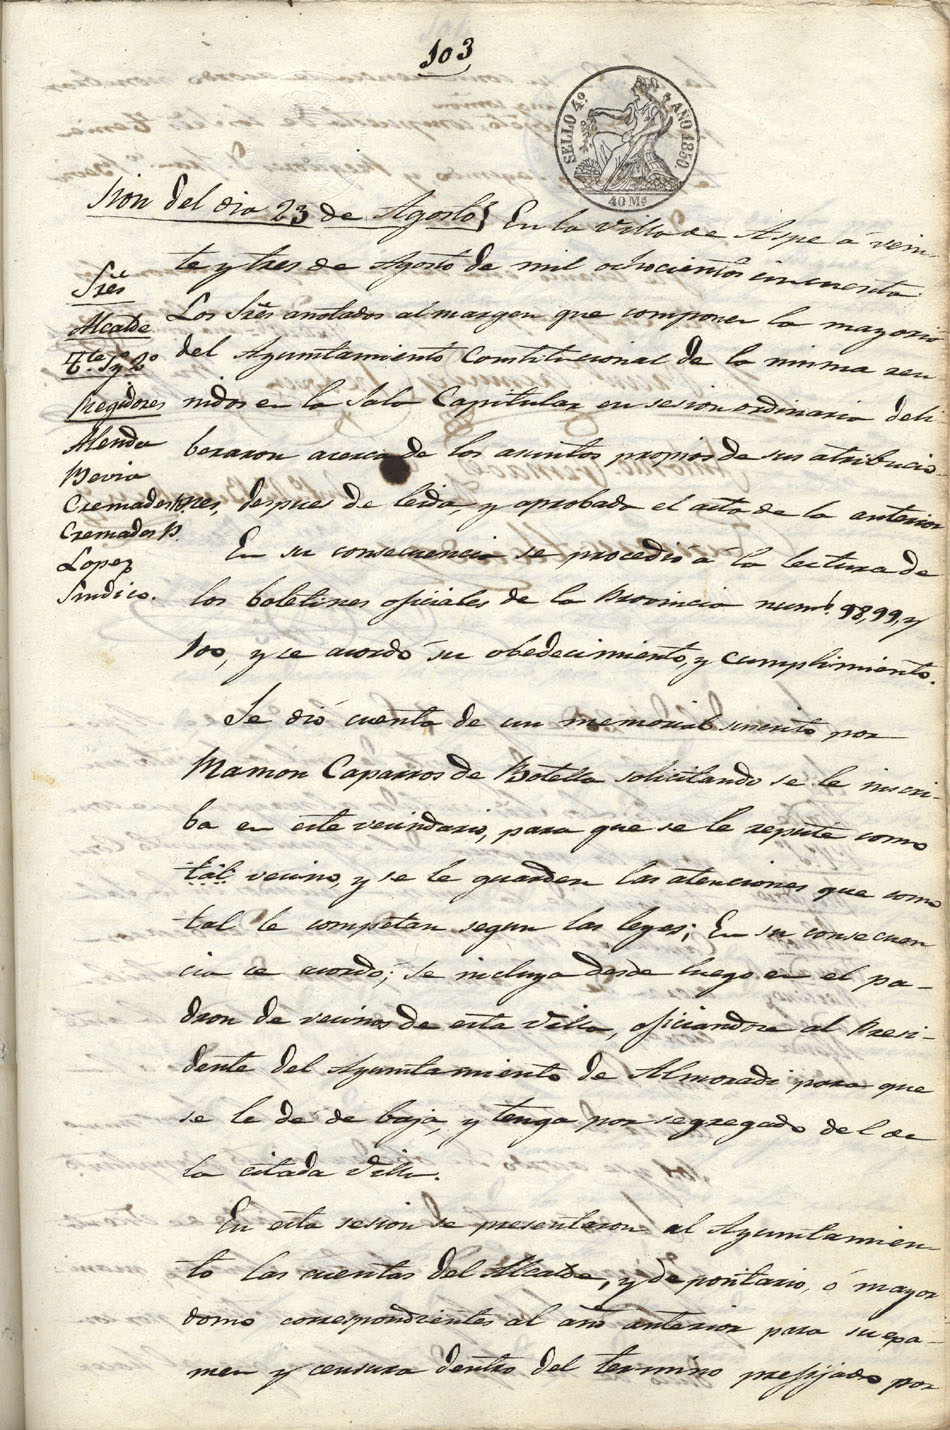 103
SELLO 4.º AÑO 1850
40 Ms
sion del dia 23 de Agosto } En la villa de Aspe á vein-
te y tres de Agosto de mil ochocientos cincuenta
Sres
Alcalde
Tte 1º y 2º
Regidores
Alenda
Bevia
Cremades
Cremades P.
Lopez
Sindico.
Los Sres anotados al margen que componen la mayoria
del Ayuntamiento Constitucional de la misma reu
nidos en la Sala Capitular en sesion ordinaria deli
beraron acerca de los asuntos propios de sus atribucio-
nes, despues de leida, y aprobada el acta de la anterior
En su consecuencia se procedió a la lectura de
los boletines oficiales de la Provincia nums. 98, 99, y
100, y se acordó su obedecimiento, y cumplimiento.
Se dió cuenta de un memorial suscrito por
Ramon Caparros de Botella solicitando se le inscri-
ba en este vecindario, para que se le repute como
tal vecino, y se le guarden las atenciones que como
tal le competan segun las leyes; En su consecuen
cia se acordó; se incluya desde luego en el pa-
dron de vecinos de esta villa, oficiandose al Presi-
dente del Ayuntamiento de Almoradi para que
se le de de baja, y tenga por segregado del de
la citada villa.
En esta sesion se presentaron al Ayuntamien
to las cuentas del Alcalde, y depositario, ó mayor
domo correspondientes al año anterior para su exa-
men y censura dentro del termino prefijado por